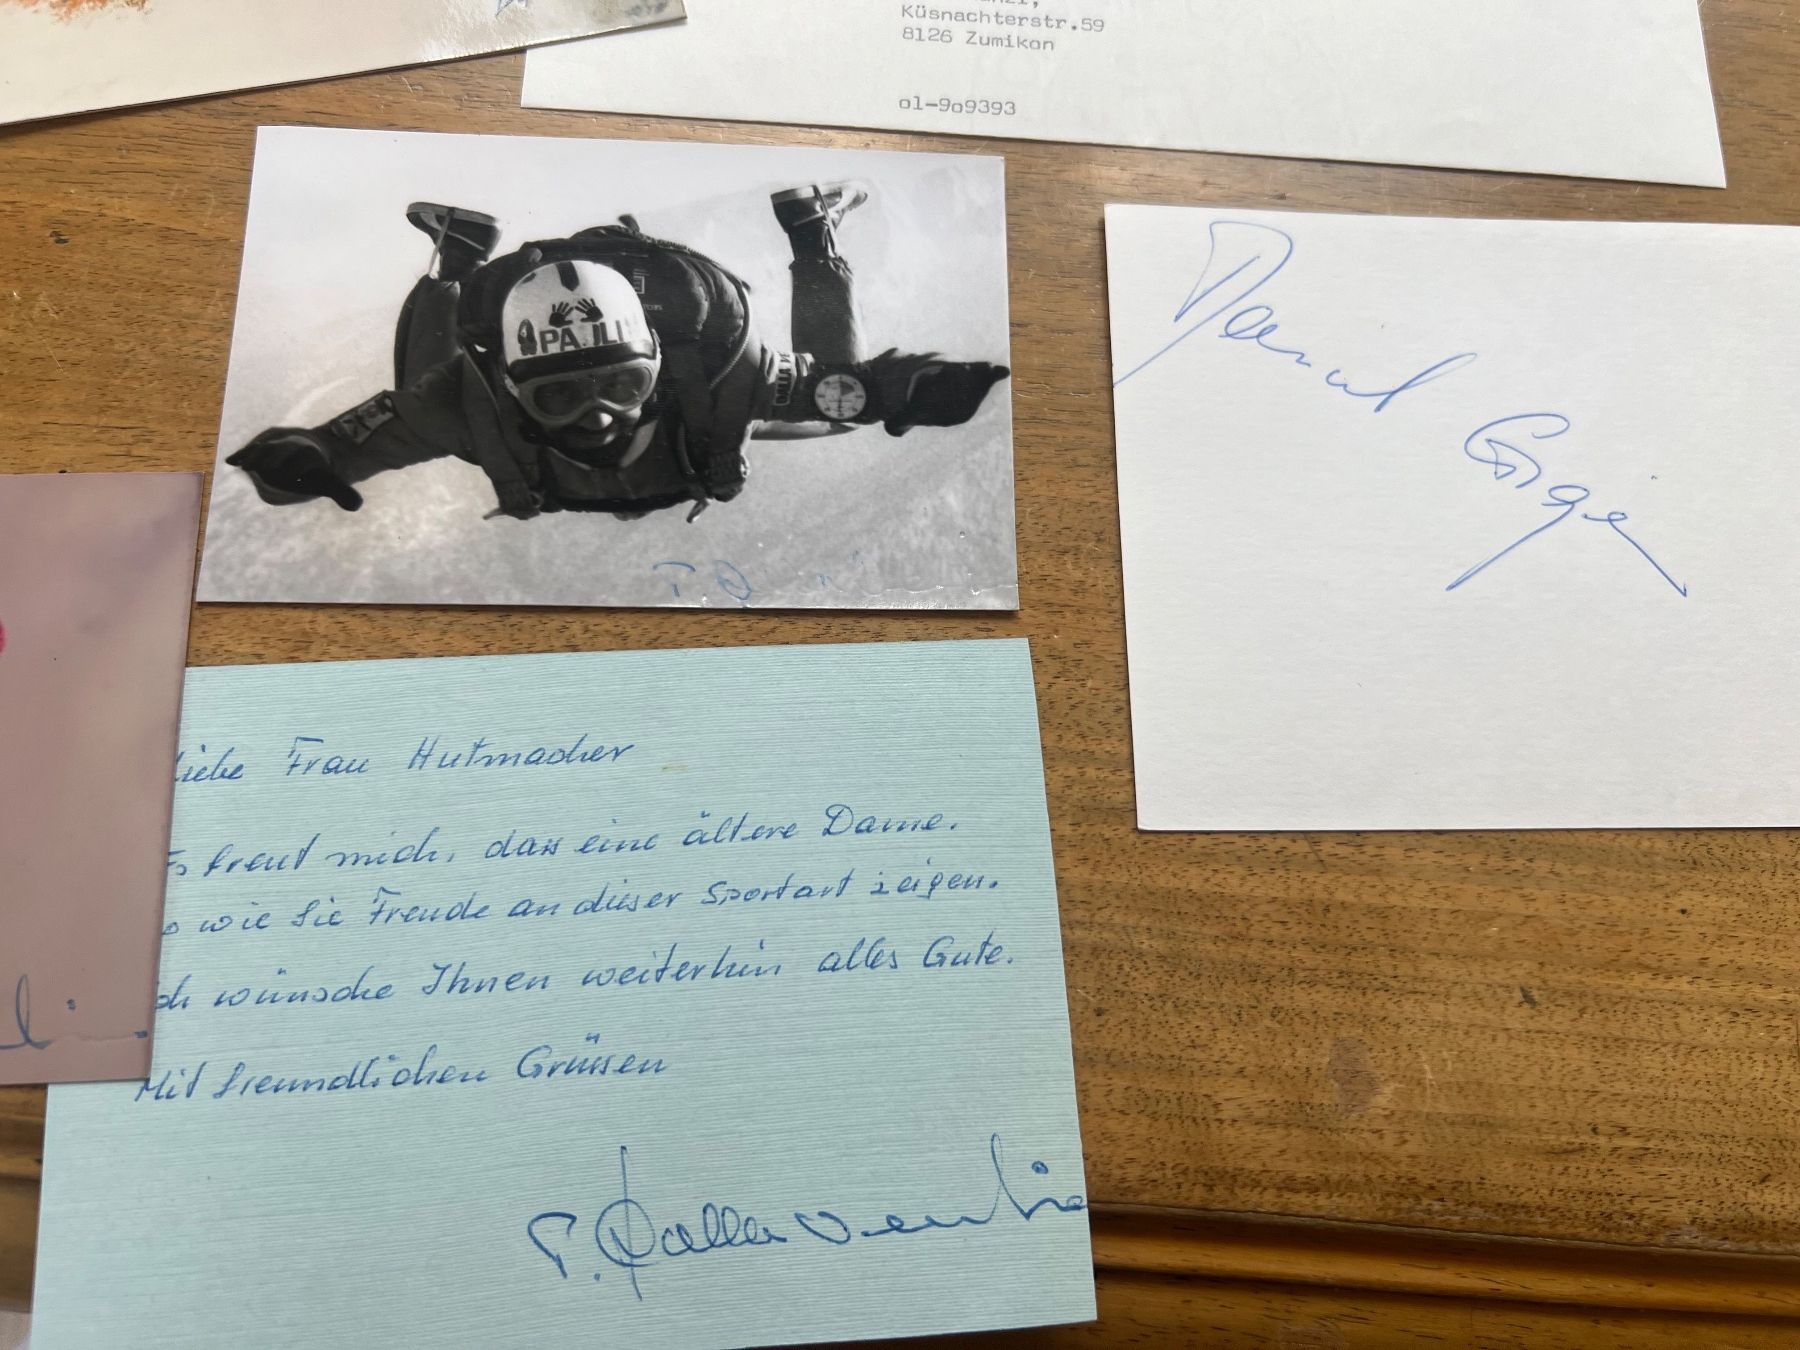 Küsnachterstr.59
8126 Zumikon
ol-9o9393
PAULI
DALLA VE
liebe Frau Hutmacher
Es freut mich, dass eine ältere Dame.
so wie Sie Freude an dieser Sportart zeigen.
Ich wünsche Ihnen weiterhin alles Gute.
Mit freundlichen Grüssen
P. Dalla